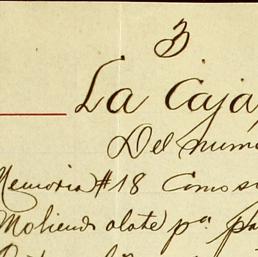 3
La Caja
Del núm
Memoria #18 Como s
Moliendo olote pª pa